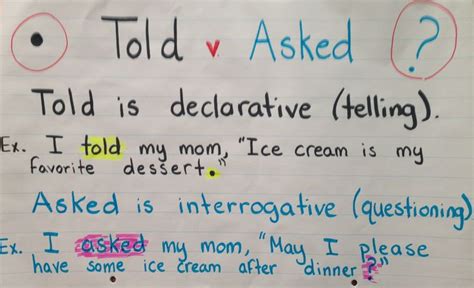 • Told v Asked ?
Told is declarative (telling).
Ex. I told my mom, "Ice cream is my
favorite dessert."
Asked is interrogative (questioning)
Ex. I asked my mom, "May I please
have some ice cream after dinner?"